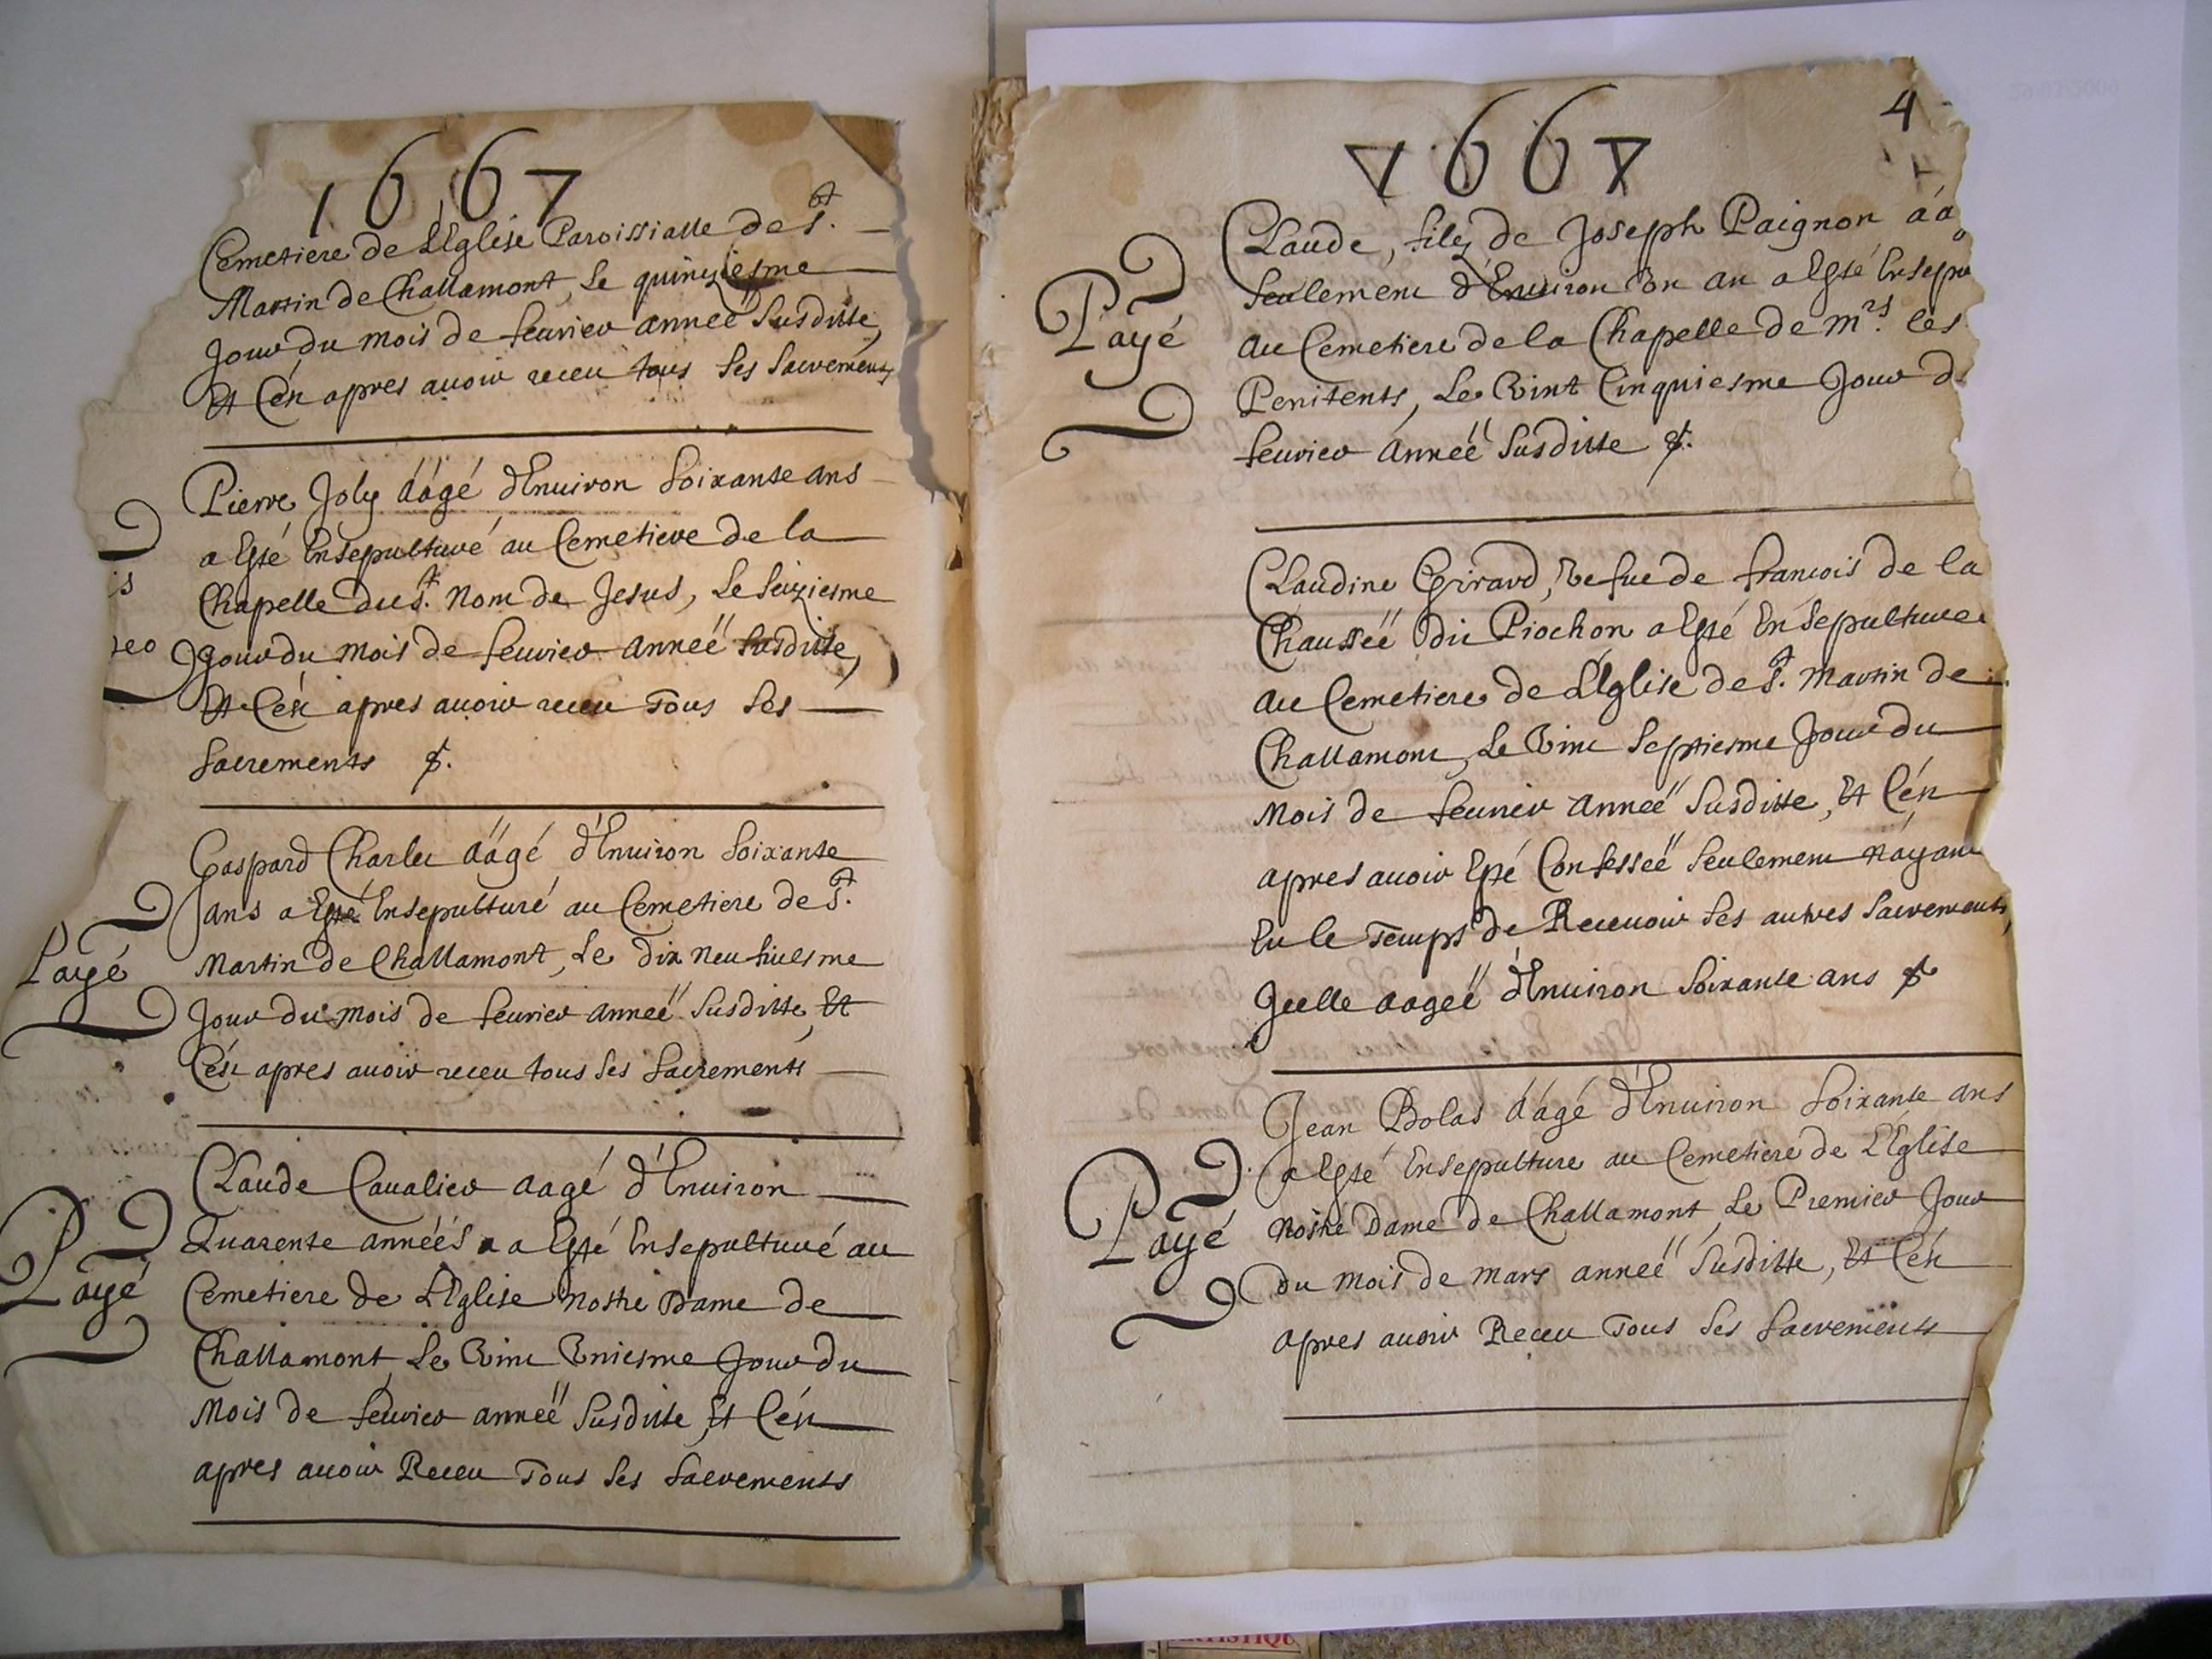 1667
Cemetiere de L'Eglise Paroissialle de St.
Martin de Challamont, Le quinziesme
Jour du mois de feurier anneé Susditte,
Et Cé́n apres auoir receu tous Ses Sacrements
Pierre Joly áágé d'Enuiron Soixante ans
a Esté Ensepulturé au Cemetiere de la
Chapelle du St. Nom de Jesus, Le Seiziesme
Jour du mois de feurier anneé Susditte,
Et Cé́n apres auoir receu Tous Ses
Sacrements
Gaspard Charlet áágé d'Enuiron Soixante
Payé
ans a Esté Ensepulturé au Cemetiere de St.
Martin de Challamont, Le dix neufuiesme
Jour du mois de feurier anneé Susditte, Et
Cé́n apres auoir receu tous Ses Sacrements
Claude Caualier aagé d'Enuiron
Payé
Quarente années a Esté Ensepulturé au
Cemetiere de L'Eglise Nostre Dame de
Challamont, Le Vint Vniesme Jour du
Mois de feurier anneé Susditte, Et Cé́n
apres auoir Receu Tous Ses Sacrements
1667
4
Claude, filz de Joseph Paignon áa
Payé
Seulement d'Enuiron Vn an a Esté Ensepu
au Cemetiere de la Chapelle de Mrs. les
Penitents, Le Vint Cinquiesme Jour d
feurier Anneé Susditte
Claudine Girard, Vefue de francois de la
Chausseé du Piochon a Esté Ensepulture
au Cemetiere de L'Eglise de St. Martin de
Challamont, Le Vint Septiesme Jour du
Mois de feurier anneé Susditte, Et Cé́n
apres auoir Esté Confesseé Seulement náyant
Eu le Temps de Receuoir Ses autres Sacrements,
Icelle aageé d'Enuiron Soixante ans
Jean Bolas áágé d'Enuiron Soixante ans
Payé
a Esté Ensepulture au Cemetiere de L'Eglise
Nostre Dame de Challamont, Le Premier Jour
du Mois de Mars anneé Susditte, Et Cé́n
apres auoir Receu Tous Ses Sacrements